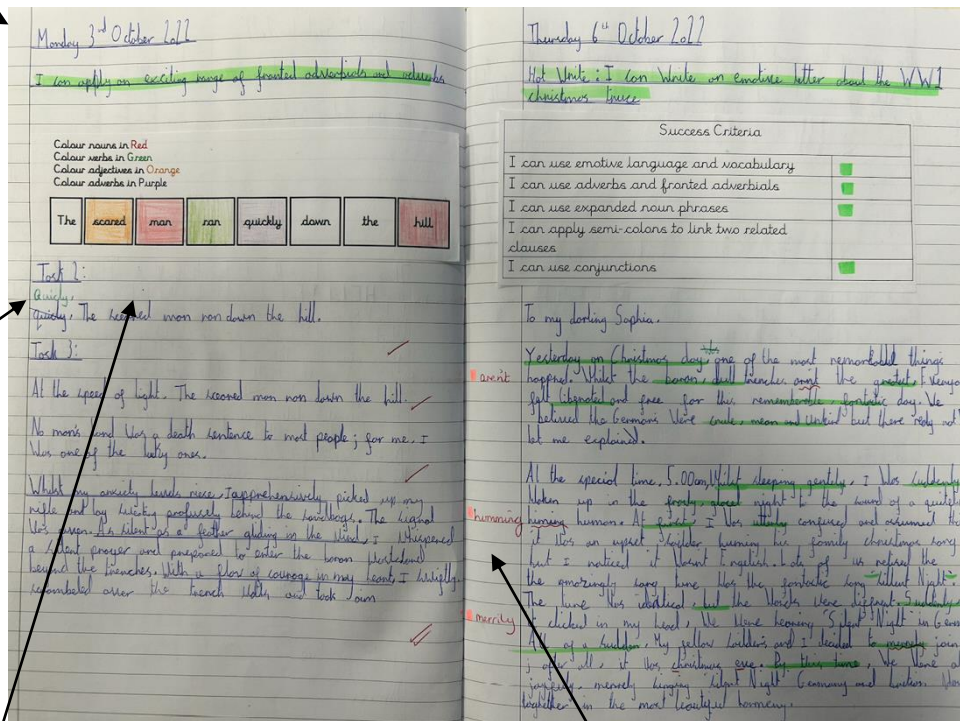 Monday 3rd October 2022
I can apply an exciting range of fronted adverbials and adverbs
Colour nouns in Red
Colour verbs in Green
Colour adjectives in Orange
Colour adverbs in Purple
The scared man ran quickly down the hill
Task 2:
Quicly,
quicly, The sceared man ran down the hill.
Task 3:
At the speed of light. The sceared man ran down the hill.
No man's land was a death sentence to most people; for me, I
was one of the lucky ones.
Whilst my anxiety levels rose, I apprehensively picked up my
rifle and lay profusely behind the sandbags. The signal
was given. As silent as a feather gliding in the wind, I whispered
a silent prayer and prepared to enter the baron wasteland
beyond the trenches. With a flow of courage in my heart, I
over the trench walls and took aim
Thursday 6th October 2022
Hot Write: I can write an emotive letter about the WW1
christmas truce
Success Criteria
I can use emotive language and vocabulary
I can use adverbs and fronted adverbials
I can use expanded noun phrases
I can apply semi-colons to link two related
clauses
I can use conjunctions
To my darling Sophia.
Yesterday on Christmas day, one of the most things
aren't
happned. Whilst the baron, dull trenches arnt the greatest, Everyone
felt and free for this, fantastic day. We
belived the Germans were crule, mean and unkind but there realy not
let me explained.
At the special time, 5.00am, Whilst sleeping gently, I was suddenly
woken up in the night to the sound of a
humming
human. At first, I was confused and assumed
it was an upset soilder huming his family christmas song
but I noticed it wasnt Engelish. Lots of us the
the amazingly song tune was the fantastic song "Silent Night"
The tune was identical, but the words were diffrent. Suddenly
merrily
it clicked in my head, We were hearing "Silent Night" in
All of a sudden, My fellow soilders and I decided to join
; after all, it was christmas eve. By this time, We were
singing Silent Night Germany and
toghether in the most beautiful harmony.